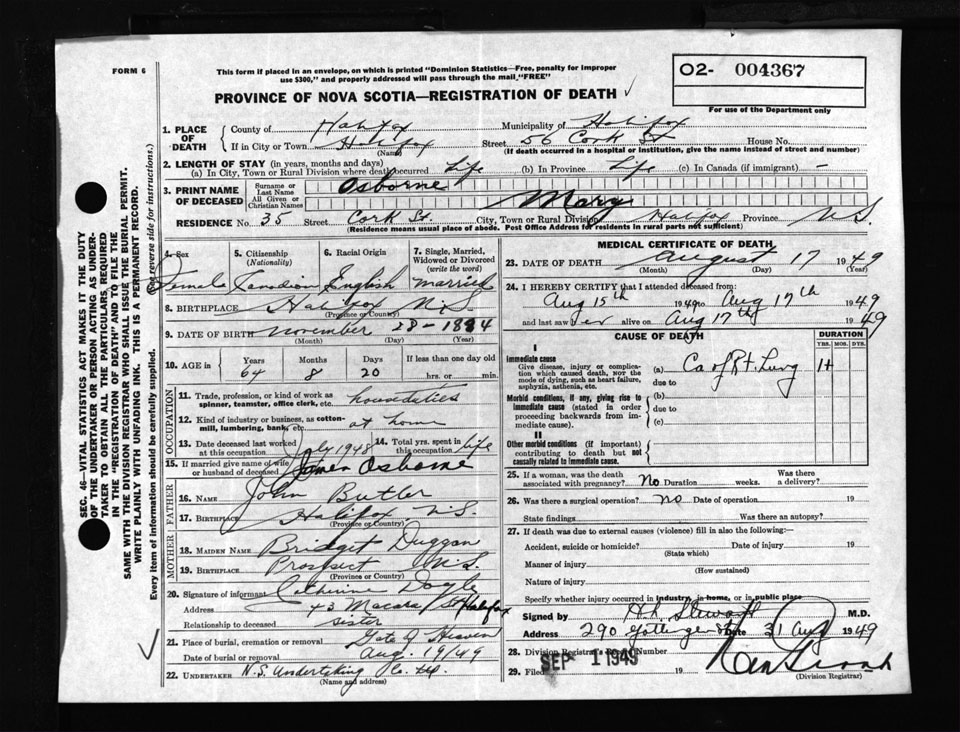 FORM 6
This form if placed in an envelope, on which is printed "Dominion Statistics—Free, penalty for improper
use $300," and properly addressed will pass through the mail "FREE"
PROVINCE OF NOVA SCOTIA—REGISTRATION OF DEATH
O2- 004367
For use of the Department only
SEC. 46—VITAL STATISTICS ACT MAKES IT THE DUTY
OF THE UNDERTAKER OR PERSON ACTING AS UNDER-
TAKER TO OBTAIN ALL THE PARTICULARS REQUIRED
IN THE "REGISTRATION OF DEATH" AND TO FILE THE
SAME WITH THE DIVISION REGISTRAR WHO SHALL ISSUE THE BURIAL PERMIT.
WRITE PLAINLY WITH UNFADING INK. THIS IS A PERMANENT RECORD.
Every item of information should be carefully supplied.
(See reverse side for instructions.)
1. PLACE OF DEATH
County of Halifax Municipality of Halifax
If in City or Town Halifax Street 56 Cork St House No.
(Name) (If death occurred in a hospital or institution, give the name instead of street and number)
2. LENGTH OF STAY (in years, months and days)
(a) In City, Town or Rural Division where death occurred Life (b) In Province Life (c) In Canada (if immigrant) -
3. PRINT NAME OF DECEASED
Surname or Last Name Osborne
All Given or Christian Names Mary
RESIDENCE No. 35 Street Cork St. City, Town or Rural Division Halifax Province N.S.
(Residence means usual place of abode. Post Office Address for residents in rural parts not sufficient)
4. Sex Female
5. Citizenship (Nationality) Canadian
6. Racial Origin English
7. Single, Married, Widowed or Divorced (write the word) married
8. BIRTHPLACE Halifax N.S.
(Province or Country)
9. DATE OF BIRTH November 28-1884
(Month) (Day) (Year)
10. AGE in Years 64 Months 8 Days 20 If less than one day old hrs. or min.
OCCUPATION
11. Trade, profession or kind of work as spinner, teamster, office clerk, etc. house duties
12. Kind of industry or business, as cotton-mill, lumbering, bank, etc. at home
13. Date deceased last worked at this occupation July 1948 14. Total yrs. spent in this occupation life
15. If married give name of wife or husband of deceased James Osborne
FATHER
16. NAME John Butler
17. BIRTHPLACE Halifax N.S.
(Province or Country)
MOTHER
18. MAIDEN NAME Bridget Duggan
19. BIRTHPLACE Prospect N.S.
(Province or Country)
20. Signature of informant Catherine Doyle
Address 43 Macara St Halifax
Relationship to deceased sister
21. Place of burial, cremation or removal Gate of Heaven
Date of burial or removal Aug. 19/49
22. UNDERTAKER N.S. Undertaking Co. Ltd.
(Name and address)
MEDICAL CERTIFICATE OF DEATH
23. DATE OF DEATH August 17 1949
(Month) (Day) (Year)
24. I HEREBY CERTIFY that I attended deceased from:
Aug 15th 1949 to Aug 17th 1949
and last saw er alive on Aug 17th 1949
CAUSE OF DEATH DURATION
YRS. MOS. DYS.
I
Immediate cause
Give disease, injury or complication which caused death, NOT the mode of dying, such as heart failure, asphyxia, asthenia, etc.
(a) Ca of Rt Lung 1+
due to
Morbid conditions, if any, giving rise to immediate cause (stated in order proceeding backwards from immediate cause).
(b)
due to
(c)
II
Other morbid conditions (if important) contributing to death but not causally related to immediate cause.
25. If a woman, was the death associated with pregnancy? No Duration weeks. Was there a delivery?
26. Was there a surgical operation? no Date of operation 19
State findings Was there an autopsy?
27. If death was due to external causes (violence) fill in also the following:—
Accident, suicide or homicide? Date of injury 19
(State which)
Manner of injury
(How sustained)
Nature of injury
Specify whether injury occurred in industry, in home, or in public place
Signed by H.h. Stewart M.D.
Address 290 Gottingen St Date 31 Aug 1949
28. Division Registrar's Record Number
29. Filed SEP 1 1949 19
(Division Registrar)